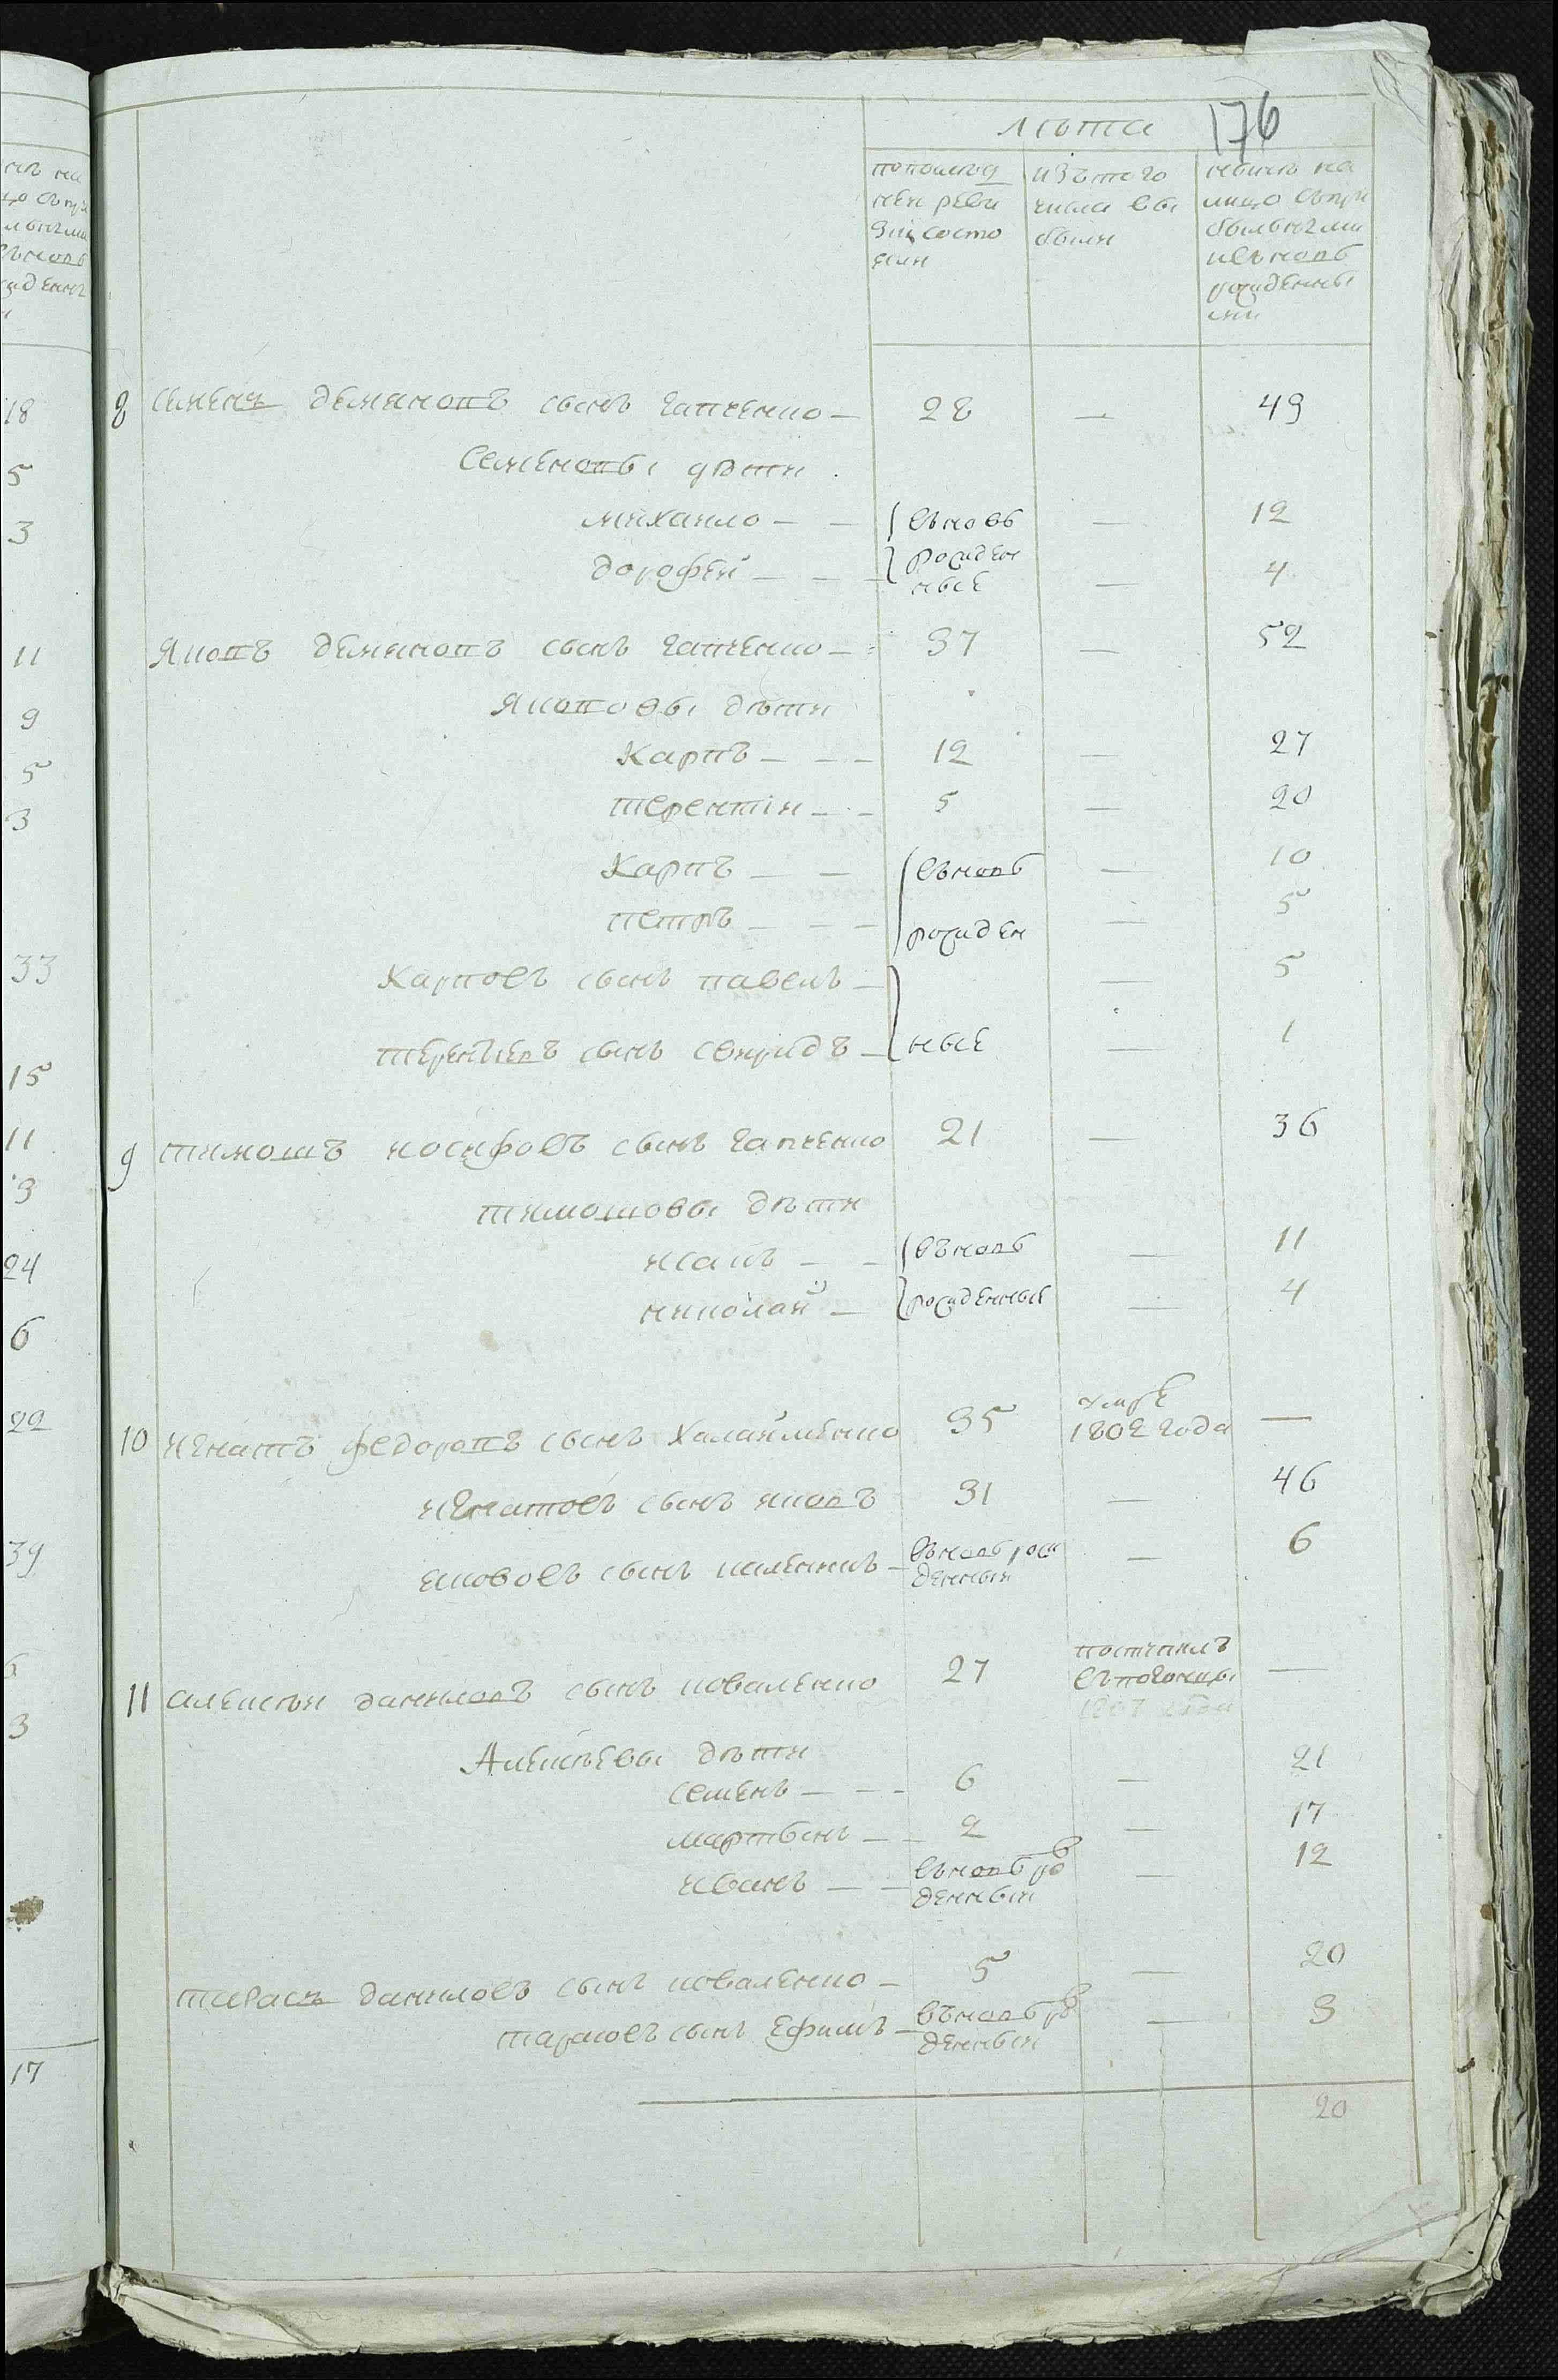 176
лѣта
попослѣд
ней реви
зіи состо
яли
изътого
числа вы
были
нынѣ на
лицо съпри
былыми
ивьновь
рожденны
ми
8 семенъ деменовъ сынъ гапченко — 28 — 49
Семеновы дѣти
михаило — — вьновь — 12
дорофей — — — рожден
ные — 4
Яковъ деменовъ сынъ гапченко — 37 — 52
Яковovы дѣти
Карпъ — — — 12 — 27
терентіи — — 5 — 20
Карпъ — — вьновь — 10
петръ — — — рожден — 5
Карповъ сынъ павелъ — — 5
терентьевъ сынъ свиридъ — ные — 1
9 тимошъ иосифовъ сынъ гапченко 21 — 36
тимошовы дѣти
исаикъ — — вьновь — 11
николай — рожденные — 4
10 игнатъ федоровъ сынъ Халаименко 35 умре
1802 года —
игнатовъ сынъ яковъ 31 — 46
якововъ сынъ — вьновь рож
денныи — 6
11 алексѣи даниловъ сынъ коваленко 27 поступилъ
въпогонцы
1807 года —
Алексѣевы дѣти
семенъ — — — 6 — 21
мартынъ — — 2 — 17
иванъ — — вьновь рож
денныи — 12
тарасъ даниловъ сынъ коваленко — 5 — 20
тарасовъ сынъ Ефимъ — вьновь рож
денныи — 3
20
18
5
3
11
9
5
3
33
15
11
3
24
6
22
39
6
3
17